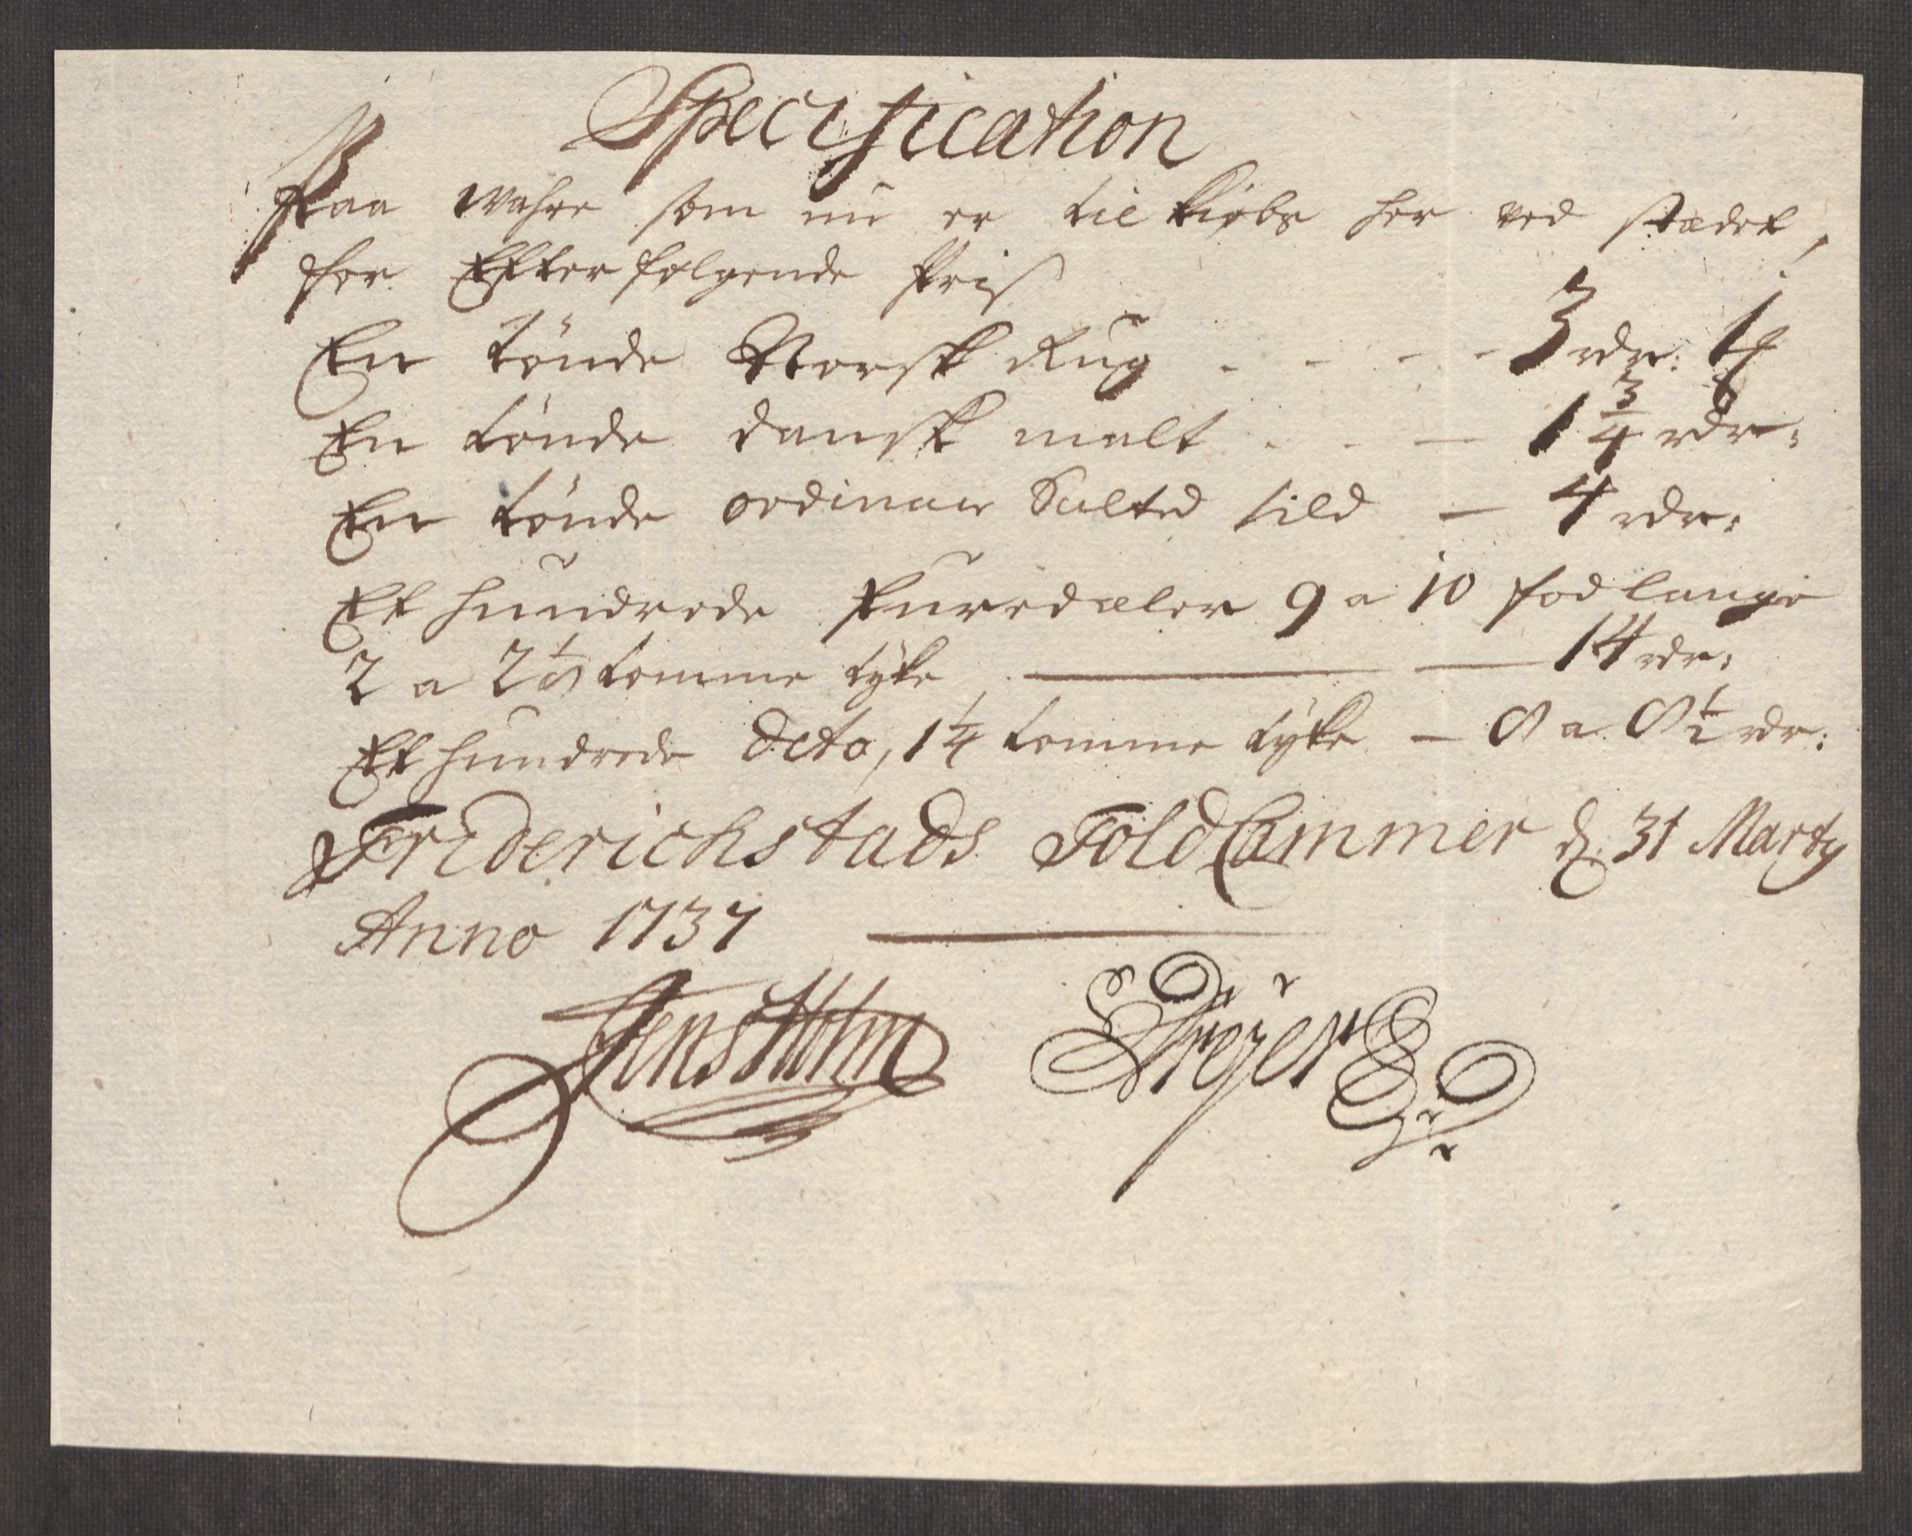 Specification
Paa Wahre som nu er til kiøbs her ved stædet,
for Efterfølgende Priis
En tönde Norsk Rug - - - - 3 rdr: 1 ß
En tönde dansk malt - - - 1 3/4 rdr:
En tönde ordinair Salted sild - 4 rdr:
Et hundrede furredæler 9 a 10 fod lange
2 a 2 1/2 tomme tÿke - - 14 rdr:
Et hundrede deto, 1 1/4 tomme tÿke - 8 a 8 1/2 rdr:
Friderichstads Told Cammer d: 31 Marty
Anno 1737
Jens Holm Dreÿer